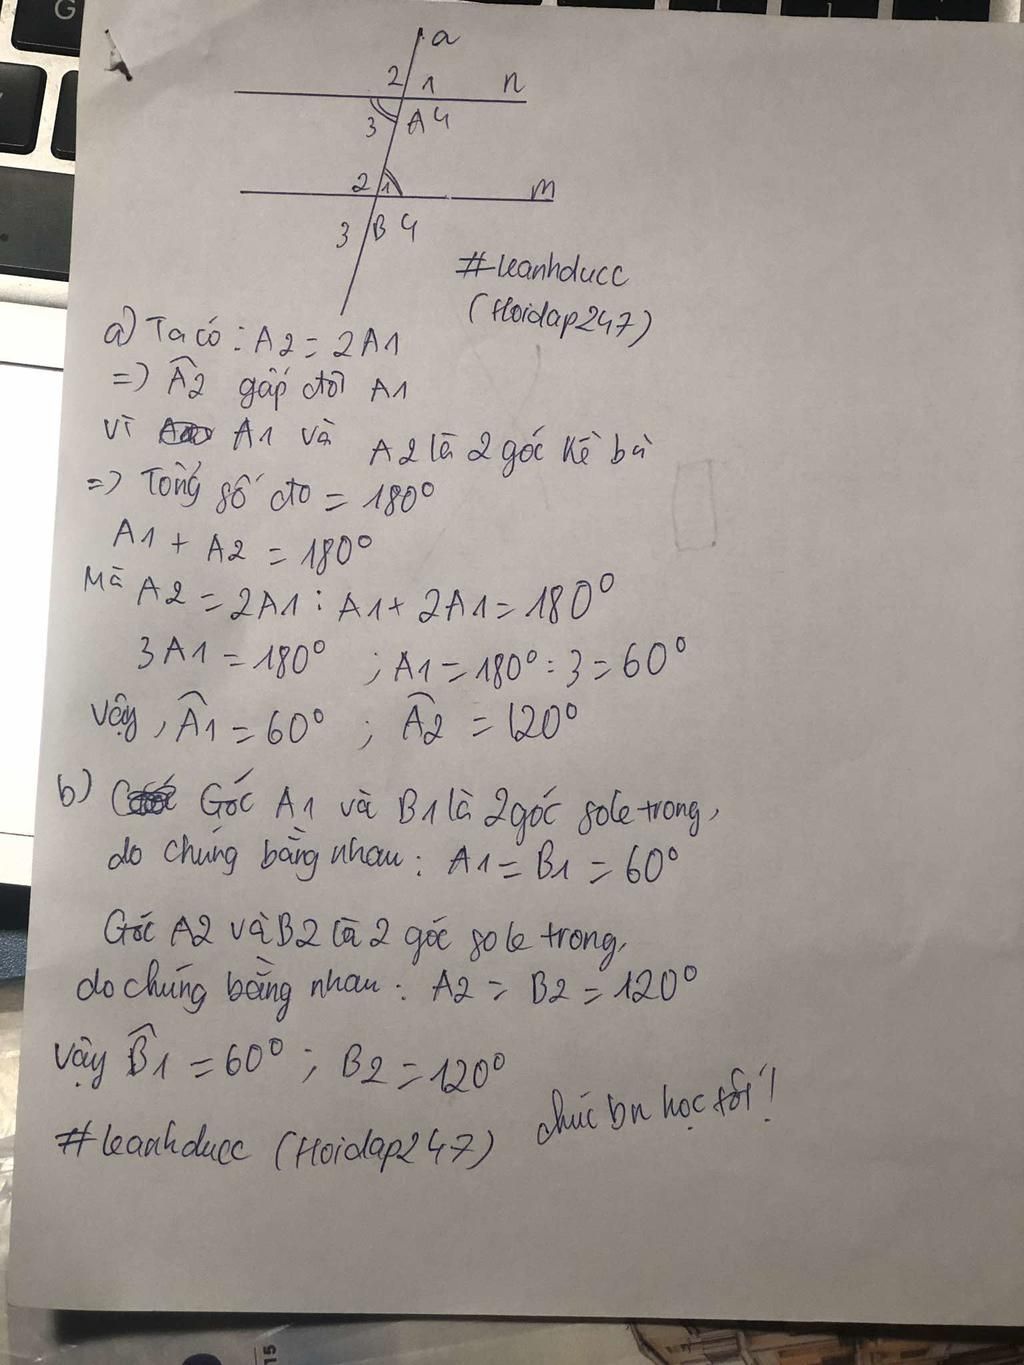 a
2 1 n
3 A 4
2 1 m
3 B 4
#leanhducc
(Hoidap247)
a) Ta có : A2 = 2A1
=) Â2 gấp đôi A1
Vì A1 và A2 là 2 góc kề bù
=) Tổng số đo = 180°
A1 + A2 = 180°
Mà A2 = 2A1 : A1 + 2A1 = 180°
3A1 = 180° ; A1 = 180° : 3 = 60°
Vậy, Â1 = 60° ; Â2 = 120°
b) Góc A1 và B1 là 2 góc sole trong,
do chúng bằng nhau : A1 = B1 = 60°
Góc A2 và B2 là 2 góc sole trong,
do chúng bằng nhau : A2 = B2 = 120°
Vậy B̂1 = 60° ; B2 = 120°
#leanhducc (Hoidap247) chúc bn học tốt!
G
15